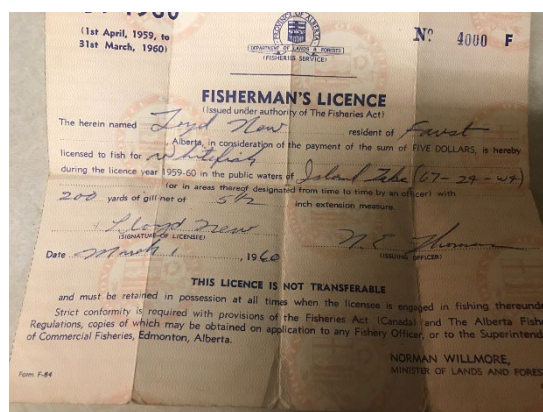 1960
(1st April, 1959, to
31st March, 1960)
PROVINCE OF ALBERTA
DEPARTMENT OF LANDS & FORESTS
(FISHERIES SERVICE)
Nº 4000 F
FISHERMAN'S LICENCE
(Issued under authority of The Fisheries Act)
The herein named Lloyd New resident of Faust
, Alberta, in consideration of the payment of the sum of FIVE DOLLARS, is hereby
licensed to fish for Whitefish
during the licence year 1959-60 in the public waters of Island Lake (67-24-W4)
(or in areas thereof designated from time to time by an officer) with
200 yards of gill-net of 5½ inch extension measure.
Lloyd New
(SIGNATURE OF LICENSEE)
N.E. Thomas
(ISSUING OFFICER)
Date March 1, 1960
THIS LICENCE IS NOT TRANSFERABLE
and must be retained in possession at all times when the licensee is engaged in fishing thereunde
Strict conformity is required with provisions of the Fisheries Act (Canada) and The Alberta Fishe
Regulations, copies of which may be obtained on application to any Fishery Officer, or to the Superintend
of Commercial Fisheries, Edmonton, Alberta.
NORMAN WILLMORE,
MINISTER OF LANDS AND FORES
Form F-84